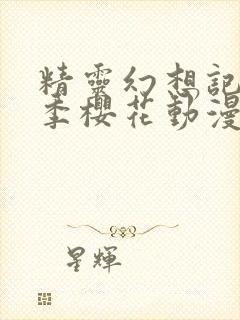 精靈幻想記
季櫻花動漫
星輝